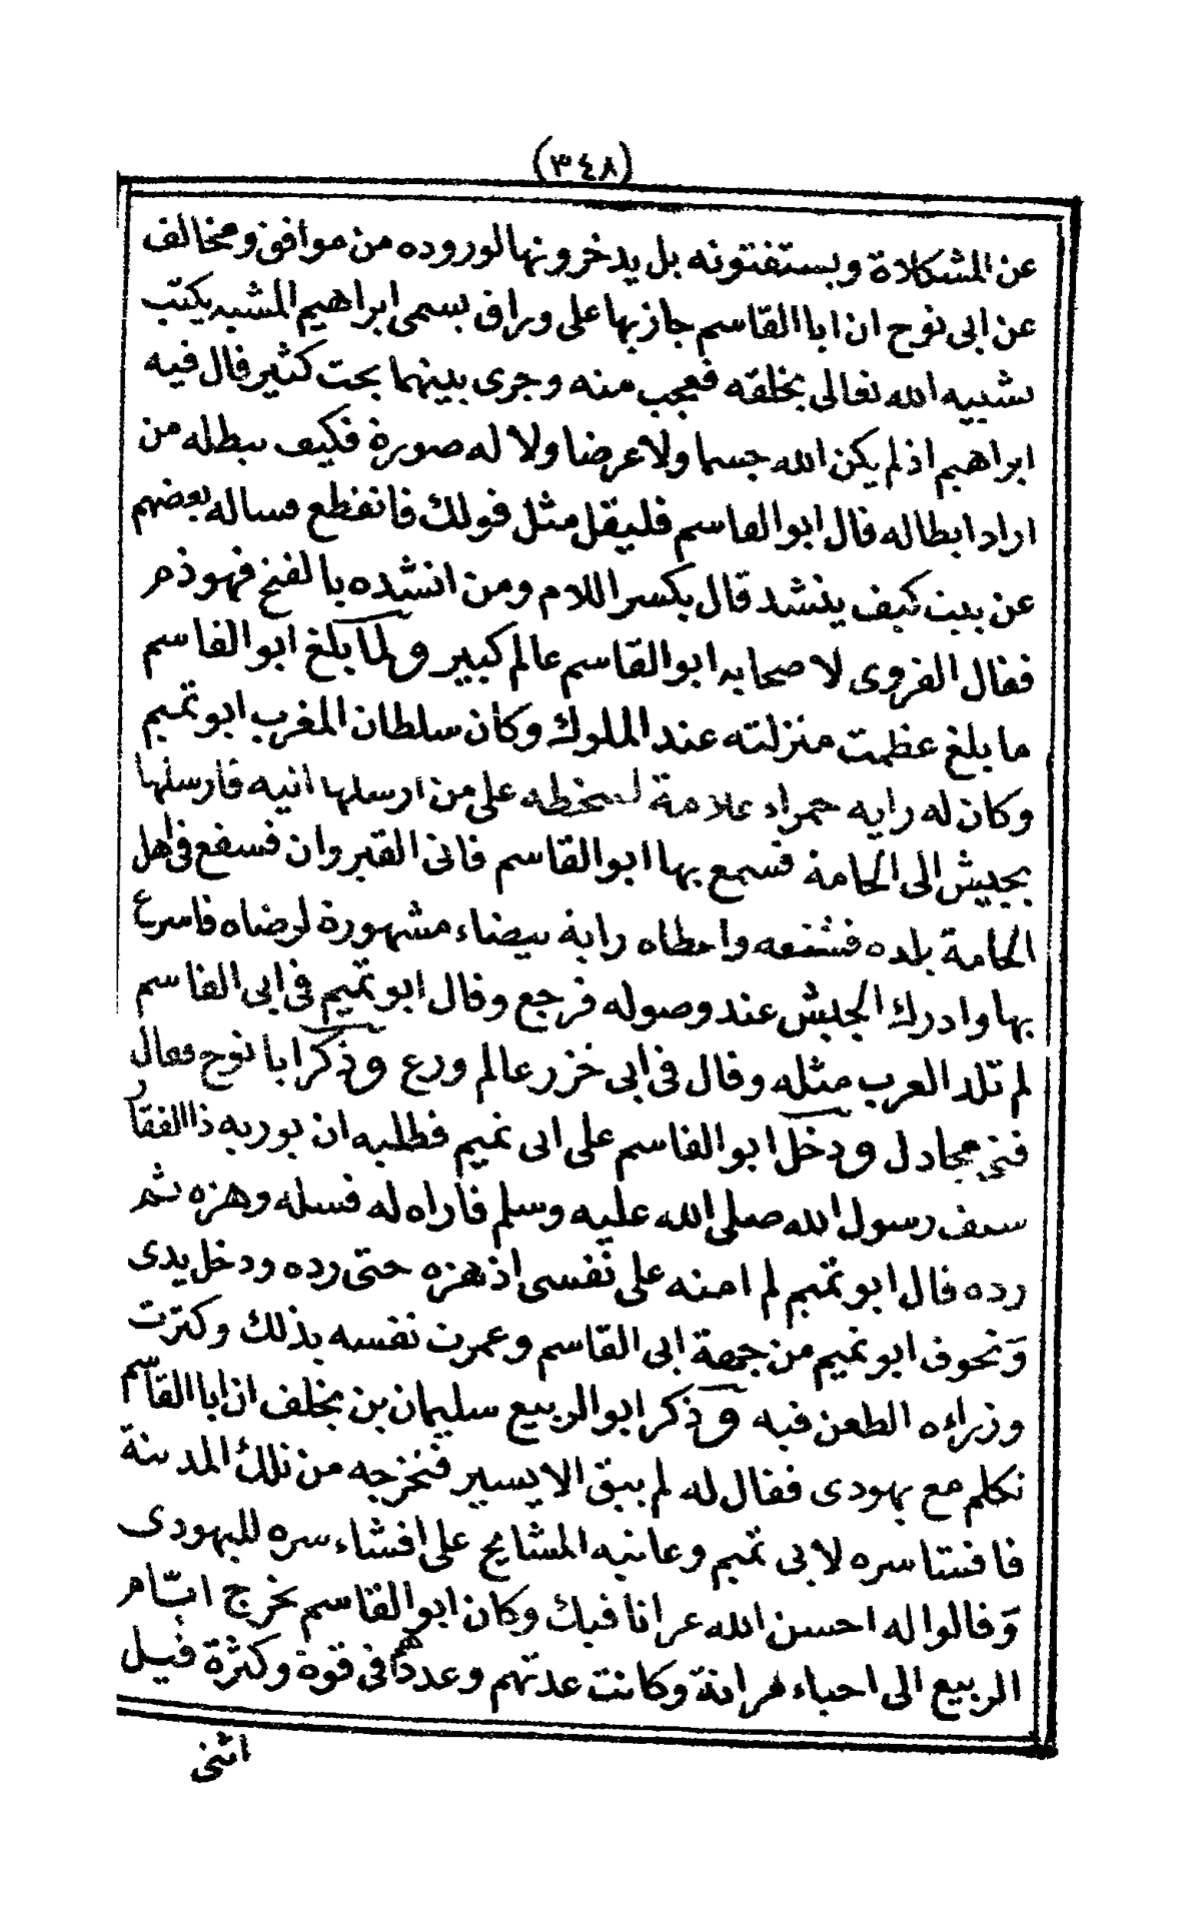 (٣٤٨)
عن المشكلاة ويستفتونه بل يدخرونها لوروده من موافق ومخالف
عن ابى نوح ان ابا القاسم جاز بها على وراق يسمى ابراهيم المشبه يكتب
تشبيه الله تعالى بخلقه فعجب منه وجرى بينهما بحث كثير قال فيه
ابراهيم اذ لم يكن الله جسما ولا عرضا ولا له صورة فكيف يبطله من
اراد ابطاله قال ابو القاسم فليقل مثل قولك فانقطع وساله بعضهم
عن بيت كيف ينشد قال بكسر اللام ومن انشده بالفتح فهو ذم
فقال القروى لاصحابه ابو القاسم عالم كبير ولما بلغ ابو القاسم
ما بلغ عظمت منزلته عند الملوك وكان سلطان المغرب ابو تميم
وكان له راية حمراء علامة لسخطه على من ارسلها اليه فارسلها
بجيش الى الحامة فسمع بها ابو القاسم فاتى القيروان فشفع فى اهل
الحامة بلده فشفعه واعطاه راية بيضاء مشهورة لرضاه فاسرع
بها وادرك الجيش عند وصوله فرجع وقال ابو تميم فى ابى القاسم
لم تلد العرب مثله وقال فى ابى خزر عالم ورع وذكر ابا نوح فقال
فتى مجادل ودخل ابو القاسم على ابى تميم فطلبه ان يوريه ذا الفقار
سيف رسول الله صلى الله عليه وسلم فاراه له فسله وهزه ثم
رده قال ابو تميم لم امنه على نفسى اذ هزه حتى رده ودخل يدى
وتخوف ابو تميم من جهة ابى القاسم وعمرت نفسه بذلك وكثرت
وزراءه الطعن فيه وذكر ابو الربيع سليمان بن يخلف ان ابا القاسم
تكلم مع يهودى فقال له لم يبق الا يسير فنخرجه من تلك المدينة
فافشا سره لابى تميم وعاتبه المشايخ على افشاء سره لليهودى
وقالوا له احسن الله عزانا فيك وكان ابو القاسم يخرج ايام
الربيع الى احياء مزاتة وكانت عدتهم وعددهم فى قوة وكثرة قيل
اثنى